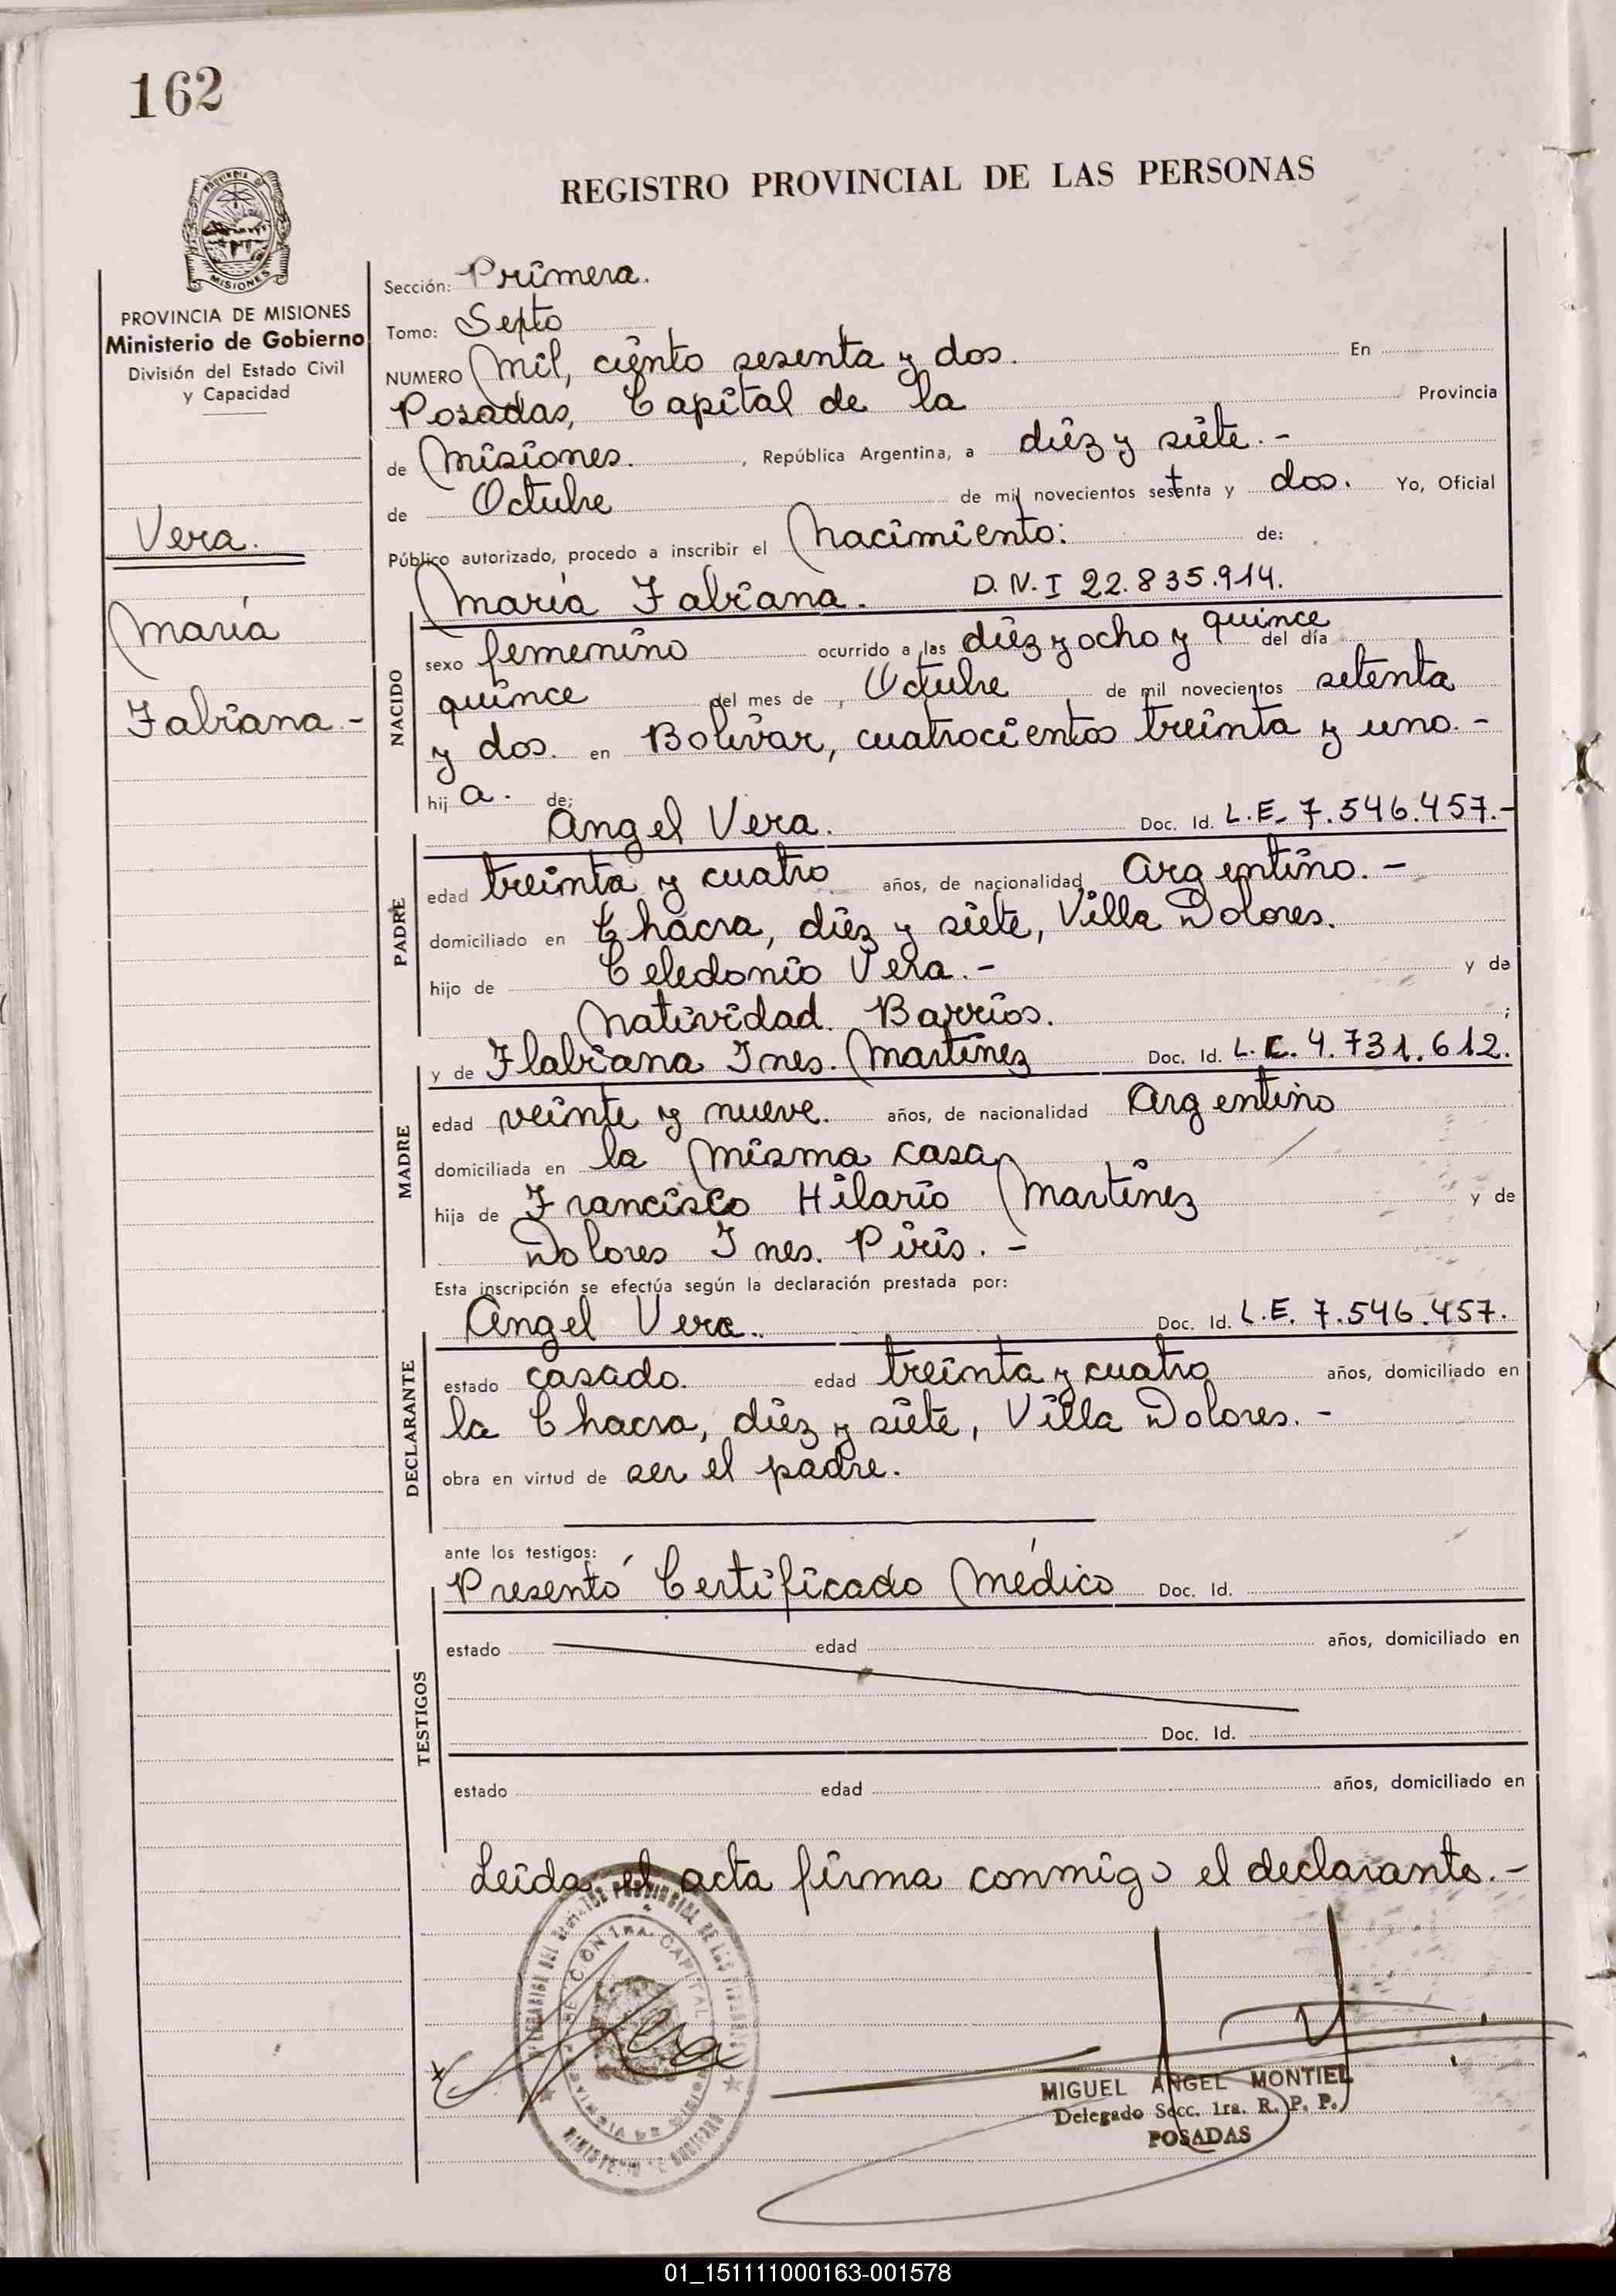 162
REGISTRO PROVINCIAL DE LAS PERSONAS
PROVINCIA
MISIONES
PROVINCIA DE MISIONES
Ministerio de Gobierno
División del Estado Civil
y Capacidad
Vera.
María
Fabiana.-
Sección: Primera.
Tomo: Septo
NUMERO Mil, ciento sesenta y dos. En
Posadas, Capital de la Provincia
de Misiones. , República Argentina, a diez y siete.-
de Octubre de mil novecientos setenta y dos. Yo, Oficial
Público autorizado, procedo a inscribir el Nacimiento: de:
María Fabiana. D.N.I 22.835.914.
NACIDO
sexo femenino ocurrido a las diez y ocho y quince del día
quince del mes de Octubre de mil novecientos setenta
y dos. en Bolivar, cuatrocientos treinta y uno.-
hij a. de:
Angel Vera. Doc. Id. L.E. 7.546.457.-
PADRE
edad treinta y cuatro años, de nacionalidad Argentino.-
domiciliado en Chacra, diez y siete, Villa Dolores.
hijo de Celedonio Vera.- y de
Natividad Barrios. ;
y de Flabiana Ines. Martinez Doc. Id. L.C. 4.731.612.
MADRE
edad veinte y nueve. años, de nacionalidad Argentino
domiciliada en la misma casa
hija de Francisco Hilario Martinez y de
Dolores Ines. Piris.-
Esta inscripción se efectúa según la declaración prestada por:
Angel Vera. Doc. Id. L.E. 7.546.457.
DECLARANTE
estado casado. edad treinta y cuatro años, domiciliado en
la Chacra, diez y siete, Villa Dolores.-
obra en virtud de ser el padre.
ante los testigos:
Presentó Certificado Médico Doc. Id.
TESTIGOS
estado edad años, domiciliado en
Doc. Id.
estado edad años, domiciliado en
Leida el acta firma conmigo el declarante.-
SECCION 1RA. CAPITAL
Vera
MIGUEL ANGEL MONTIEL
Delegado Secc. 1ra. R. P. P.
POSADAS
01_151111000163-001578